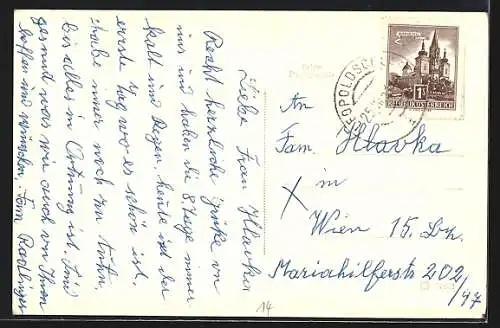 Liebe Frau Hlavka
Recht herzliche Grüße von
uns und haben die 8 Tage immer
kalt und Regen heute ist der
erste Tag wo es schön ist.
habe immer noch zu tun,
bis alles in Ordnung ist. Sind
gesund was wir auch von Ihnen
hoffen und wünschen, Fam. Radlinger
An
Fam. Hlavka
in
Wien 15. Bz.
Mariahilferstr 202
/47
14
REPUBLIK ÖSTERREICH